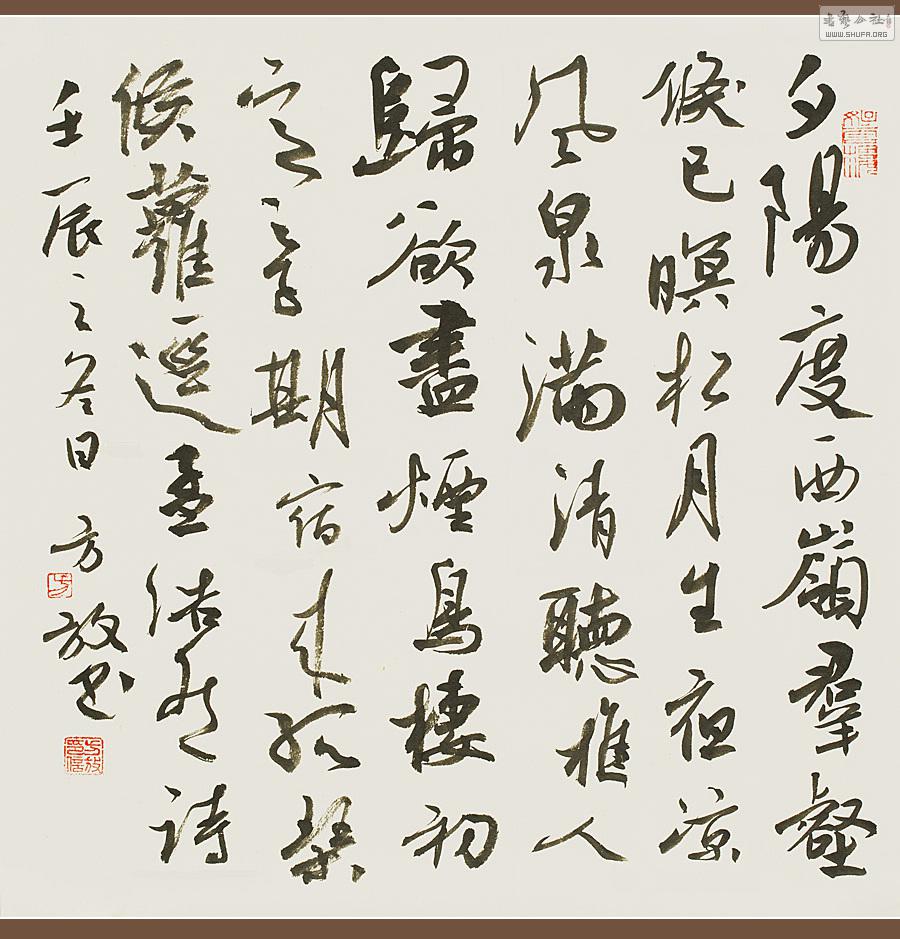 夕陽度西嶺羣壑
倏已暝松月生夜涼
風泉滿清聽樵人
歸欲盡煙鳥棲初
定之子期宿來孤琴
候蘿逕孟浩然詩
壬辰之冬日 方放書
方
書藝公社
WWW.SHUFA.ORG